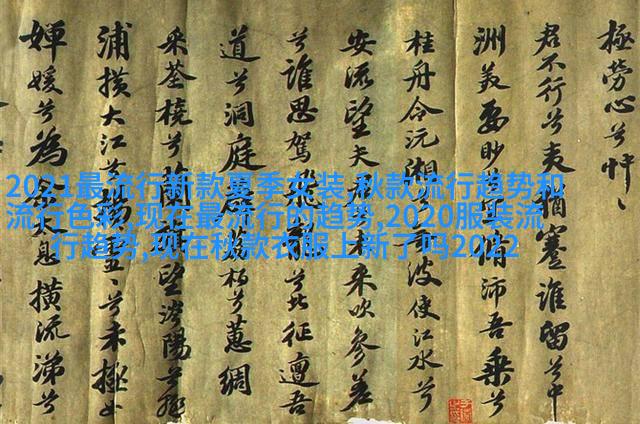 極勞心兮忡忡
君不行兮夷猶蹇誰留兮中
洲美要眇脩沛吾乘兮
桂舟令沅湘兮波使江水兮
安流望夫來吹參差
兮誰思駕飛兮北征邅吾
道兮洞庭柏兮蕙綢
采荃橈兮蘭望涔陽兮
浦橫大江兮未極女
嬋媛兮為息橫流涕兮
2021最流行新款夏季女装,秋款流行趋势和
流行色彩,现在最流行的趋势,2020服装流
行趋势,现在秋款衣服上新了吗2022